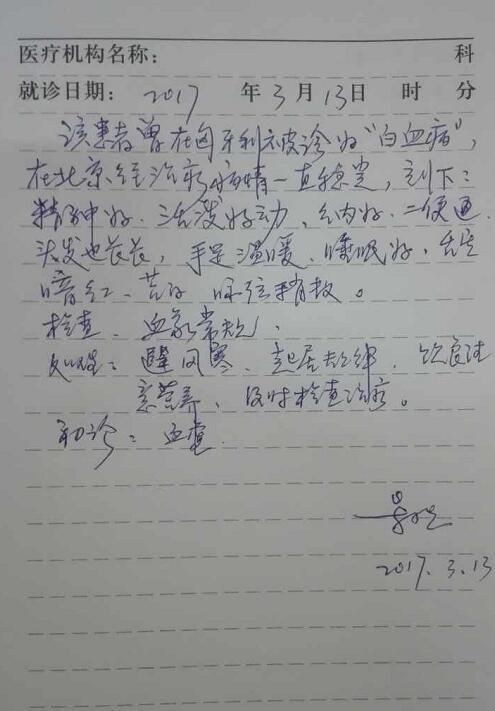 医疗机构名称： 科
就诊日期： 2017 年 3 月 13 日 时 分
该患者曾在匈牙利被诊为"白血病",
在北京经治疗病情一直稳定, 刻下:
精神好. 活泼好动、纳好. 二便通.
头发也长长, 手足温暖、睡眠好, 舌质
暗红、苔白 脉弦稍数。
检查、血象常规.
处理: 避风寒、起居规律、饮食注
意营养、及时检查治疗。
初诊: 血虚.
2017. 3. 13